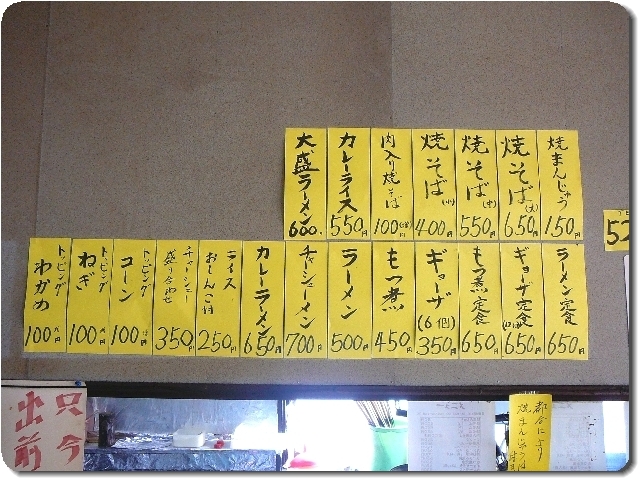 焼まんじゅう 150円
焼そば(大) 650円
焼そば(中) 550円
焼そば(小) 400円
肉入り焼そば 100円増
カレーライス 550円
大盛ラーメン 600円
ラーメン定食 650円
ギョーザ定食 650円
もつ煮定食 650円
ギョーザ(6個) 350円
もつ煮 450円
ラーメン 500円
チャーシューメン 700円
カレーラーメン 650円
ライス おしんこ付 250円
盛り合わせ 350円
トッピング コーン 100円増
トッピング ねぎ 100円増
トッピング わかめ 100円増
52
都合により
焼まんじゅうは
只今
出前